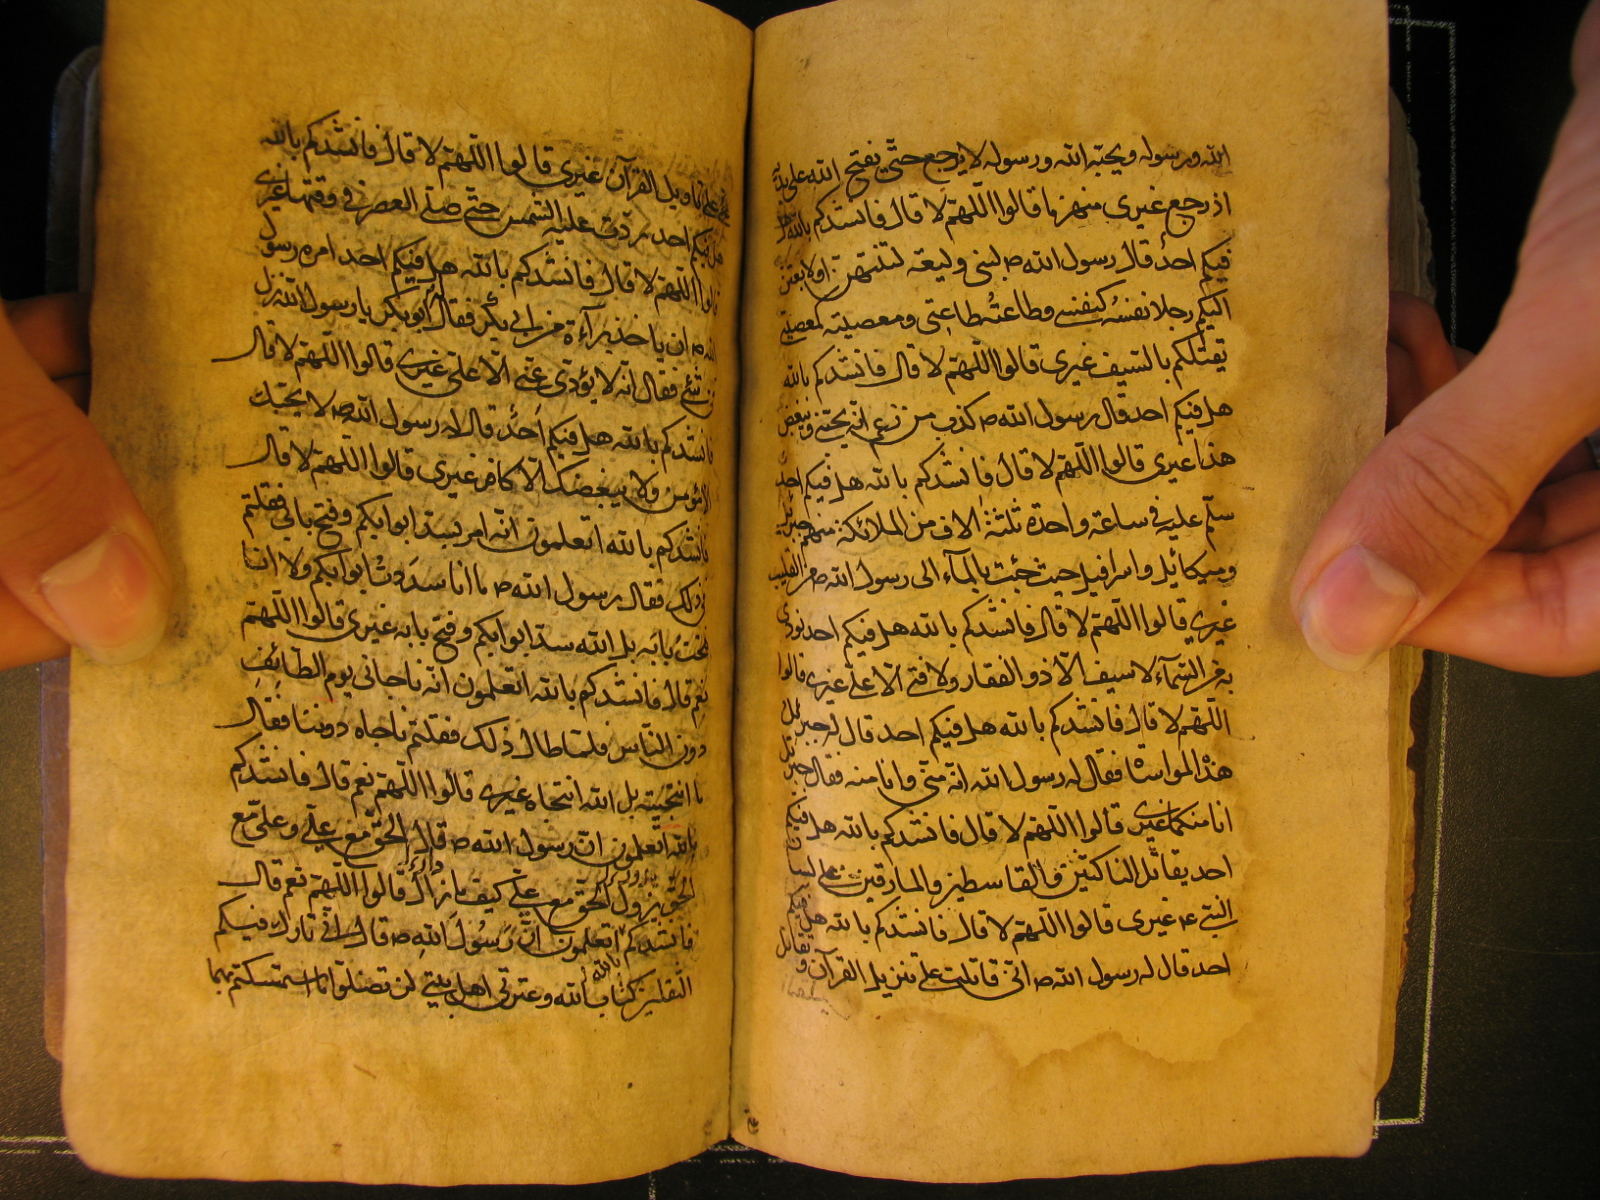 الله ورسوله ويحبّه الله ورسوله لا يرجع حتّى يفتح الله على يده
اذ رجع غيرى منهزما قالوا اللّهمّ لا قال فانشدكم بالله هل
فيكم احدٌ قال رسول الله ص لبنى وليعه لتنتهنّ او لابعثن
اليكم رجلا نفسُه كنفسى وطاعتُه طاعتى ومعصيته كمعصيتى
يقتلكم بالسيف غيرى قالوا اللّهمّ لا قال فانشدكم بالله
هل فيكم احد قال رسول الله ص كذب من زعم انه يحبّنى ويبغض
هذا غيرى قالوا اللّهمّ لا قال فانشدكم بالله هل فيكم احد
سلّم عليه فى ساعة واحدة ثلثة الاف من الملائكة منهم جبرئيل
وميكائيل واسرافيل حيث جئت بالمآء الى رسول الله ص من القليب
غيرى قالوا اللّهمّ لا قال فانشدكم بالله هل فيكم احد نودى
به من السّمآء لا سيف الّا ذو الفقار ولا فتى الّا علىّ غيرى قالوا
اللّهمّ لا قال فانشدكم بالله هل فيكم احد قال له جبرئيل
هذا المواساة فقال له رسول الله انّه منّى وانا منه فقال جبرئيل
انا منكما غيرى قالوا اللّهمّ لا قال فانشدكم بالله هل فيكم
احد يقاتل الناكثين والقاسطين والمارقين على لسان
النبىّ غيرى قالوا اللّهمّ لا قال فانشدكم بالله هل فيكم
احد قال له رسول الله ص انّى قاتلت على تنزيل القرآن وتقاتل
على تاويل القرآن غيرى قالوا اللّهمّ لا قال فانشدكم بالله
هل فيكم احد ردّت عليه الشمس حتّى صلّى العصر فى وقتها غيرى
قالوا اللّهمّ لا قال فانشدكم بالله هل فيكم احد امره رسول
الله ص ان ياخذ برآءة من ابى بكر فقال له ابو بكر يا رسول الله نزل
فىّ شئ فقال انه لا يؤدّى عنّى الّا علىّ غيرى قالوا اللّهمّ لا قال
فانشدكم بالله هل فيكم احدٌ قال له رسول الله ص لا يحبّك
الا مؤمن ولا يبغضك الّا كافر غيرى قالوا اللّهمّ لا قال
فانشدكم بالله اتعلمون انّه امر بسدّ ابوابكم وفتح بابى فقلتم
فى ذلك فقال رسول الله ص ما انا سددتُ ابوابكم ولا انا
فتحت بابه بل الله سدّ ابوابكم وفتح بابه غيرى قالوا اللّهمّ
نعم قال فانشدكم بالله اتعلمون انّه ناجانى يوم الطّائف
دون النّاس فلمّا طال ذلك فقلتم ناجاه دوننا فقال
ما انتجيته بل الله انتجاه غيرى قالوا اللّهمّ نعم قال فانشدكم
بالله اتعلمون انّ رسول الله ص قال الحقّ مع علىّ وعلىّ مع
الحقّ يزول الحقّ مع علىّ كيف ما زال قالوا اللّهمّ نعم قال
فانشدكم بالله اتعلمون انّ رَسُولَ الله ص قال انّى تارك فيكم
الثقلين كتاب الله وعترتى اهل بيتى لن تضلّوا ما استمسكتم بهما